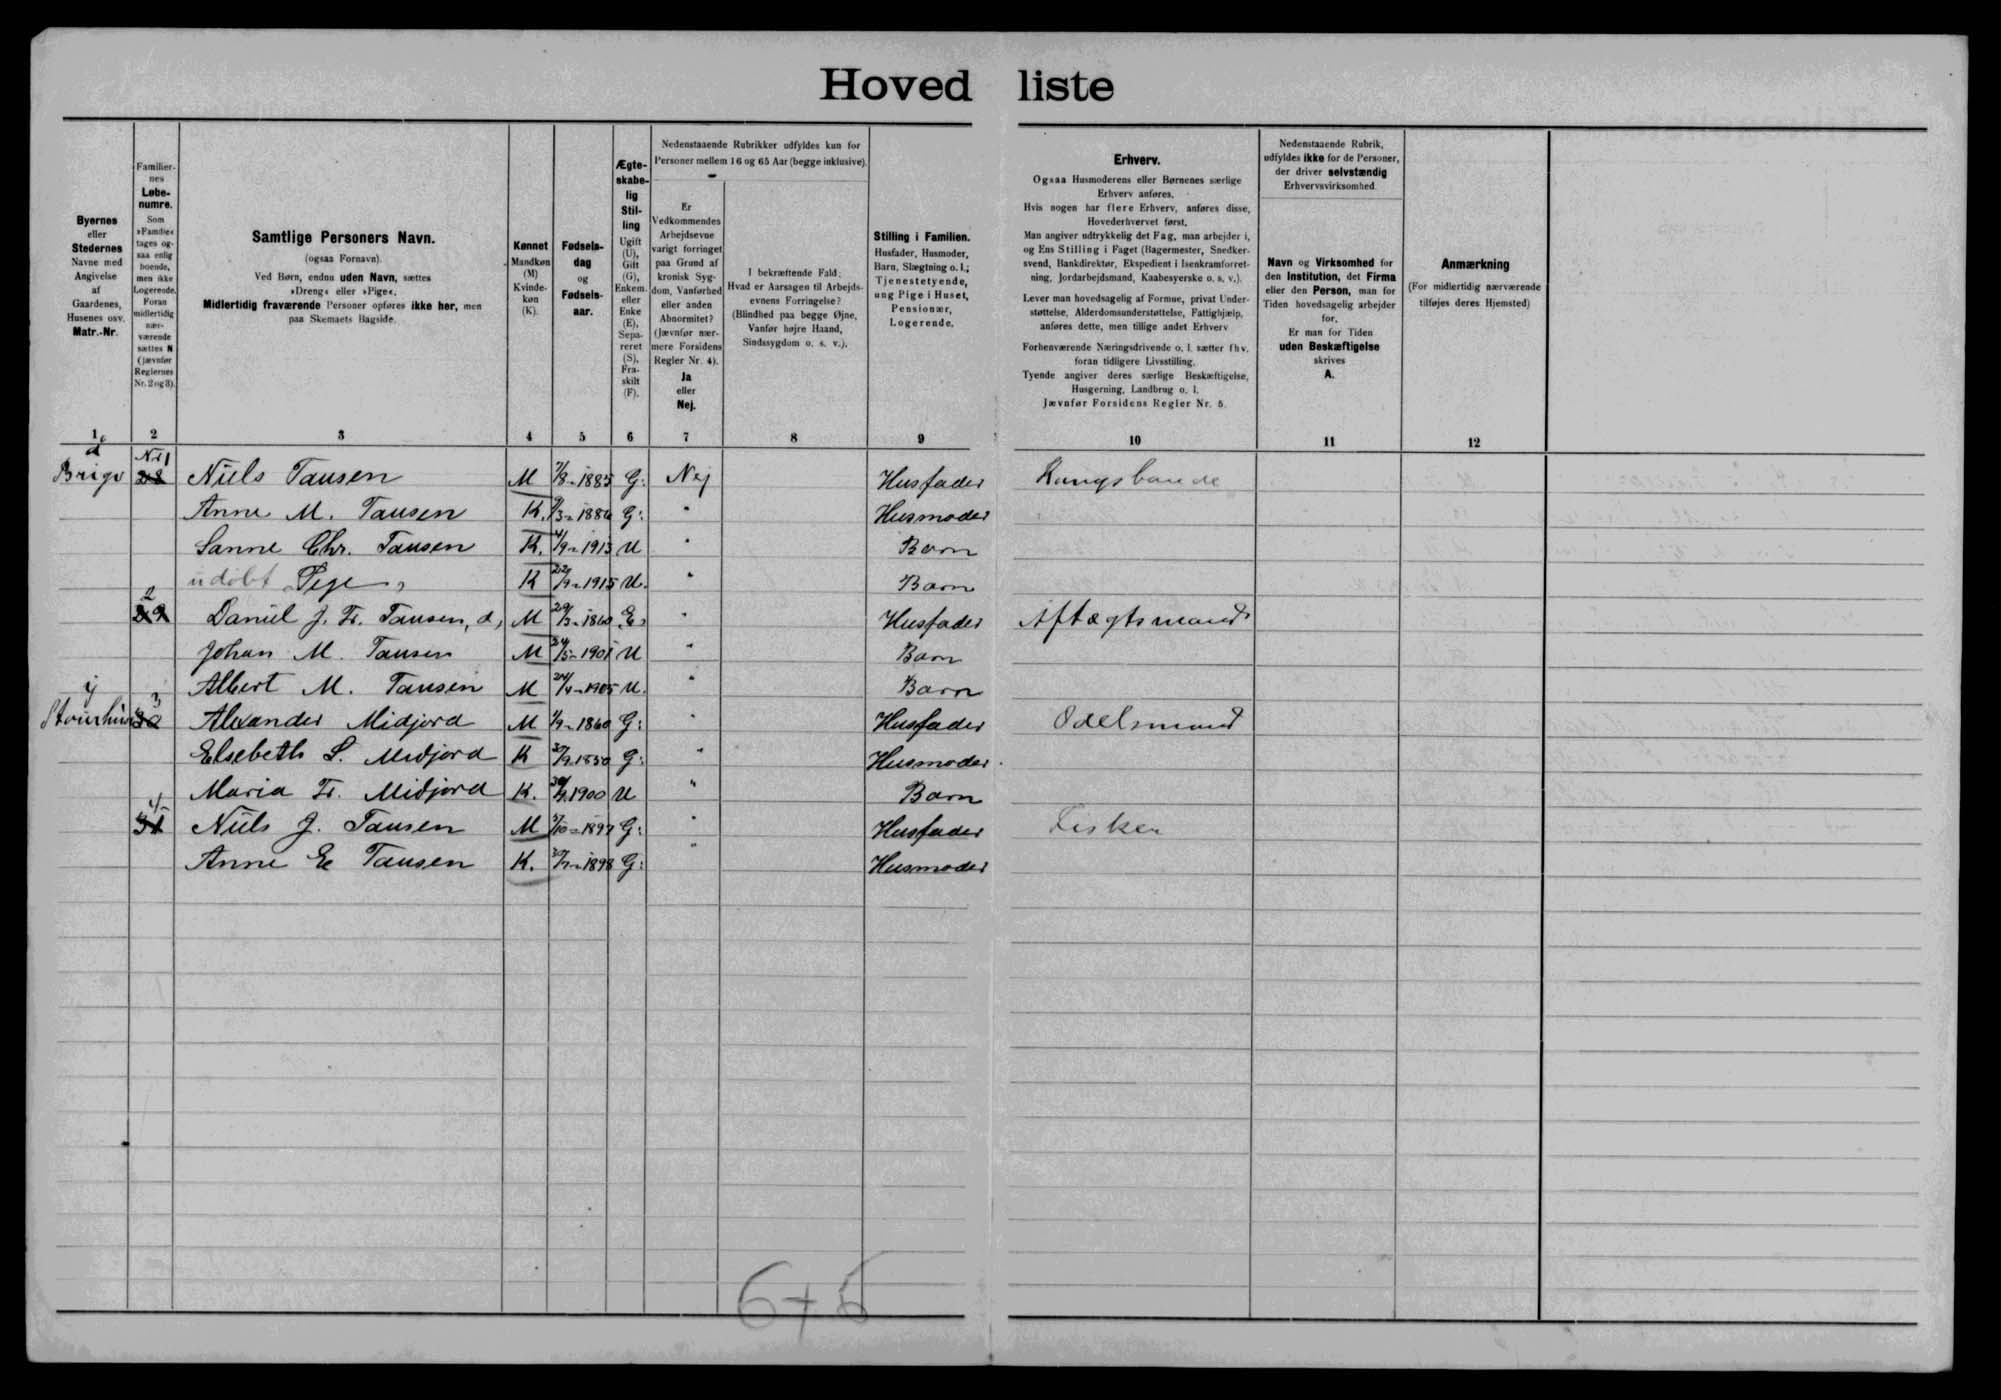 Hovedliste
Byernes
eller
Stedernes
Navne med
Angivelse
af
Gaardenes,
Husenes osv.
Matr.-Nr.
Familier-
nes
Løbe-
numre.
Som
»Familie«
tages og-
saa enlig
boende,
men ikke
Logerende.
Foran
midlertidig
nær-
værende
sættes N
(jævnfør
Reglernes
Nr. 2 og 3).
Samtlige Personers Navn.
(ogsaa Fornavn).
Ved Børn, endnu uden Navn, sættes
»Dreng« eller »Pige«.
Midlertidig fraværende Personer opføres ikke her, men
paa Skemaets Bagside.
Kønnet
Mandkøn
(M)
Kvinde-
køn
(K).
Fødsels-
dag
og
Fødsels-
aar.
Ægte-
skabe-
lig
Stil-
ling
Ugift
(U),
Gift
(G),
Enkem.
eller
Enke
(E),
Sepa-
reret
(S),
Fra-
skilt
(F).
Nedenstaaende Rubrikker udfyldes kun for
Personer mellem 16 og 65 Aar (begge inklusive).
Er
Vedkommendes
Arbejdsevne
varigt forringet
paa Grund af
kronisk Syg-
dom, Vanførhed
eller anden
Abnormitet?
(Jævnfør nær-
mere Forsidens
Regler Nr. 4).
Ja
eller
Nej.
I bekræftende Fald:
Hvad er Aarsagen til Arbejds-
evnens Forringelse?
(Blindhed paa begge Øjne,
Vanfør højre Haand,
Sindssygdom o. s. v.).
Stilling i Familien.
Husfader, Husmoder,
Barn, Slægtning o. l.;
Tjenestetyende,
ung Pige i Huset,
Pensionær,
Logerende.
Erhverv.
Ogsaa Husmoderens eller Børnenes særlige
Erhverv anføres.
Hvis nogen har flere Erhverv, anføres disse,
Hovederhvervet først.
Man angiver udtrykkelig det Fag, man arbejder i,
og Ens Stilling i Faget (Bagermester, Snedker-
svend, Bankdirektør, Ekspedient i Isenkramforret-
ning, Jordarbejdsmand, Kaabesyerske o. s. v.).
Lever man hovedsagelig af Formue, privat Under-
støttelse, Alderdomsunderstøttelse, Fattighjælp,
anføres dette, men tillige andet Erhverv
Forhenværende Næringsdrivende o. l. sætter fhv.
foran tidligere Livsstilling.
Tyende angiver deres særlige Beskæftigelse,
Husgerning, Landbrug o. l.
Jævnfør Forsidens Regler Nr. 5.
Nedenstaaende Rubrik,
udfyldes ikke for de Personer,
der driver selvstændig
Erhvervsvirksomhed.
Navn og Virksomhed for
den Institution, det Firma
eller den Person, man for
Tiden hovedsagelig arbejder
for.
Er man for Tiden
uden Beskæftigelse
skrives
A.
Anmærkning
(For midlertidig nærværende
tilføjes deres Hjemsted)
1 2 3 4 5 6 7 8 9 10 11 12
Nr 1 Niels Tausen M 7/8-1885 G: Nej Husfader Kongsbonde
Anne M. Tausen K. 1886 G: " Husmoder
Sanne Chr. Tausen K. 1913 U " Barn
udøbt Pige, K 1915 U. " Barn
2 29 Daniel J. Fr. Tausen, M 1860 E, " Husfader Aftægtsmand
Johan M. Tausen M 1901 U " Barn
Albert M. Tausen M 1905 U. " Barn
3 30 Alexander Midjord M 1860 G: " Husfader Odelsmand
Elsebeth S. Midjord K 1850 G: " Husmoder
Maria Fr. Midjord K. 1900 U " Barn
4 31 Niels J. Tausen M 1897 G: " Husfader Fisker
Anne E Tausen K. 1898 G: " Husmoder
6+6